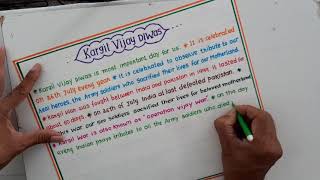 Kargil Vijay Diwas
* Kargil Vijay Diwas is most important day for us. * It is celebrated
on 26th July every year * It is celebrated to observe tribute to our
Real heroes, the Army soldiers who sacrified their lives for our Motherland.
* Kargil War was fought between India and Pakistan in 1999, it lasted for
about 60 days. * On 26th of July India at last defeated Pakistan. * In
this War our 500 soldiers sacrificed their lives for beloved motherland
* Kargil War is also known as 'operation vijay war'. * On this day
every Indian pays tributes to all the Army soldiers who died